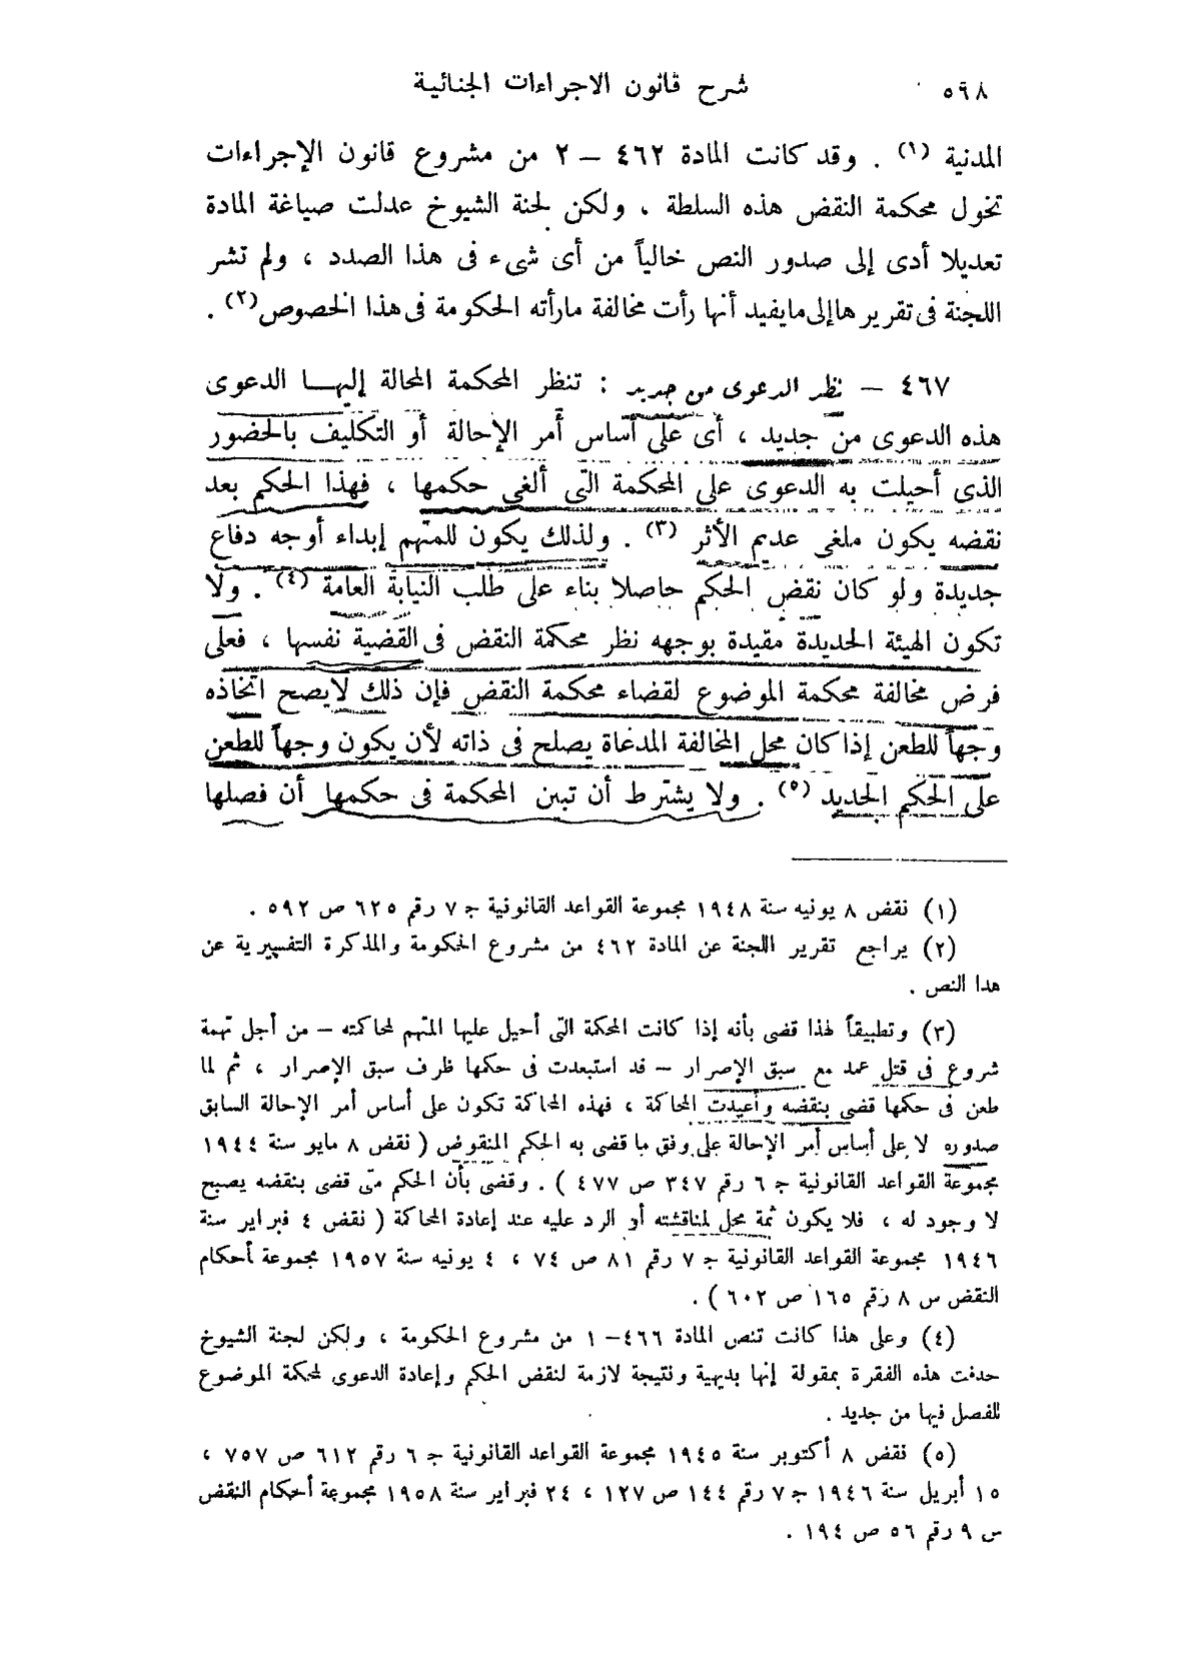 ٥٩٨ شرح قانون الاجراءات الجنائية
المدنية (١) . وقد كانت المادة ٤٦٢ – ٢ من مشروع قانون الإجراءات
تخول محكمة النقض هذه السلطة ، ولكن لجنة الشيوخ عدلت صياغة المادة
تعديلا أدى إلى صدور النص خالياً من أى شىء فى هذا الصدد ، ولم تشر
اللجنة فى تقريرها إلى مايفيد أنها رأت مخالفة مارأته الحكومة فى هذا الخصوص (٢) .
٤٦٧ – نظر الدعوى من جديد : تنظر المحكمة المحالة إليها الدعوى
هذه الدعوى من جديد ، أى على أساس أمر الإحالة أو التكليف بالحضور
الذى أحيلت به الدعوى على المحكمة التى ألغى حكمها ، فهذا الحكم بعد
نقضه يكون ملغى عديم الأثر (٣) . ولذلك يكون للمتهم إبداء أوجه دفاع
جديدة ولو كان نقض الحكم حاصلا بناء على طلب النيابة العامة (٤) . ولا
تكون الهيئة الجديدة مقيدة بوجهه نظر محكمة النقض فى القضية نفسها ، فعلى
فرض مخالفة محكمة الموضوع لقضاء محكمة النقض فإن ذلك لايصح اتخاذه
وجهاً للطعن إذا كان محل المخالفة المدعاة يصلح فى ذاته لأن يكون وجهاً للطعن
على الحكم الجديد (٥) . ولا يشترط أن تبين المحكمة فى حكمها أن فصلها
(١) نقض ٨ يونيه سنة ١٩٤٨ مجموعة القواعد القانونية ج ٧ رقم ٦٢٥ ص ٥٩٢ .
(٢) يراجع تقرير اللجنة عن المادة ٤٦٢ من مشروع الحكومة والمذكرة التفسيرية عن
هذا النص .
(٣) وتطبيقاً لهذا قضى بأنه إذا كانت المحكمة التى أحيل عليها المتهم لمحاكمته – من أجل تهمة
شروع فى قتل عمد مع سبق الإصرار – قد استبعدت فى حكمها ظرف سبق الإصرار ، ثم لما
طعن فى حكمها قضى بنقضه وأعيدت المحاكمة ، فهذه المحاكمة تكون على أساس أمر الإحالة السابق
صدوره لا على أساس أمر الإحالة على وفق ما قضى به الحكم المنقوض ( نقض ٨ مايو سنة ١٩٤٤
مجموعة القواعد القانونية ج ٦ رقم ٣٤٧ ص ٤٧٧ ) . وقضى بأن الحكم متى قضى بنقضه يصبح
لا وجود له ، فلا يكون ثمة محل لمناقشته أو الرد عليه عند إعادة المحاكمة ( نقض ٤ فبراير سنة
١٩٤٦ مجموعة القواعد القانونية ج ٧ رقم ٨١ ص ٧٤ ، ٤ يونيه سنة ١٩٥٧ مجموعة أحكام
النقض س ٨ رقم ١٦٥ ص ٦٠٢ ) .
(٤) وعلى هذا كانت تنص المادة ٤٦٦–١ من مشروع الحكومة ، ولكن لجنة الشيوخ
حذفت هذه الفقرة بمقولة إنها بديهية ونتيجة لازمة لنقض الحكم وإعادة الدعوى لمحكمة الموضوع
للفصل فيها من جديد .
(٥) نقض ٨ أكتوبر سنة ١٩٤٥ مجموعة القواعد القانونية ج ٦ رقم ٦١٢ ص ٧٥٧ ،
١٥ أبريل سنة ١٩٤٦ ج ٧ رقم ١٤٤ ص ١٢٧ ، ٢٤ فبراير سنة ١٩٥٨ مجموعة أحكام النقض
س ٩ رقم ٥٦ ص ١٩٤ .